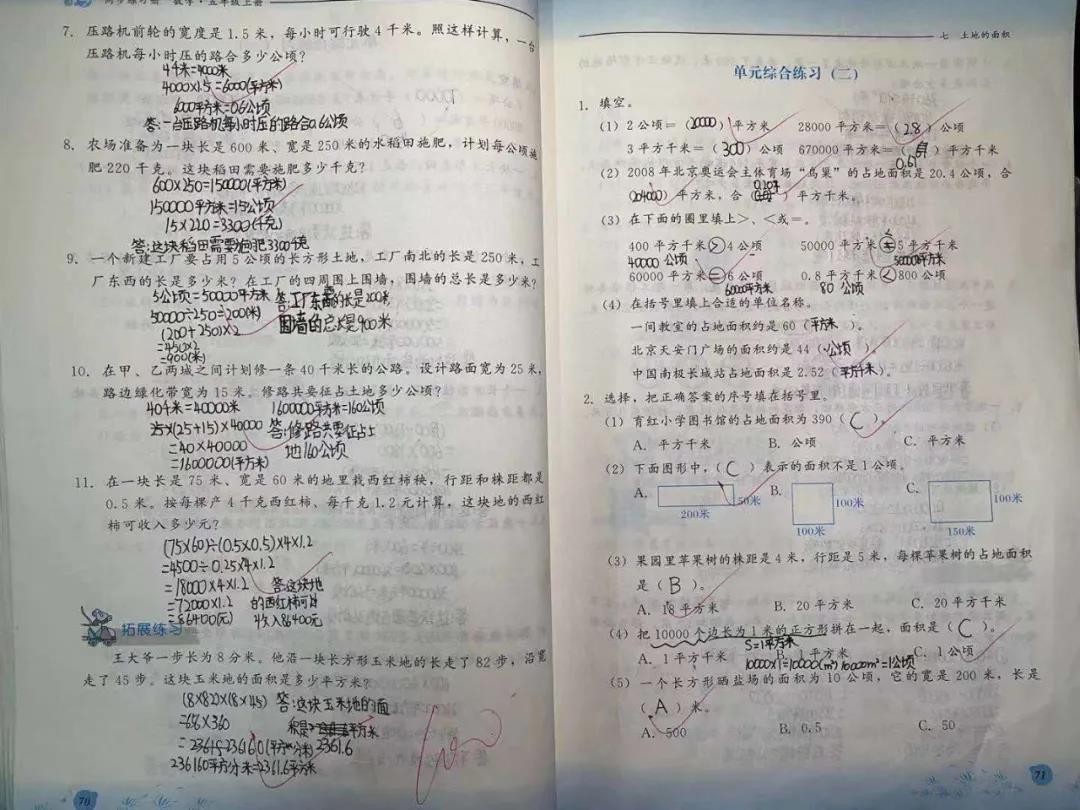 同步练习册 数学·五年级上册
7. 压路机前轮的宽度是 1.5 米，每小时可行驶 4 千米。照这样计算，一台
压路机每小时压的路合多少公顷？
4千米=4000米
4000×1.5=6000(平方米)
6000平方米=0.6公顷
答:一台压路机每小时压的路合0.6公顷
8. 农场准备为一块长是 600 米、宽是 250 米的水稻田施肥，计划每公顷施
肥 220 千克。这块稻田需要施肥多少千克？
600×250=150000(平方米)
150000平方米=15公顷
15×220=3300(千克)
答:这块稻田需要施肥3300千克
9. 一个新建工厂要占用 5 公顷的长方形土地，工厂南北的长是 250 米，工
厂东西的长是多少米？在工厂的四周围上围墙，围墙的总长是多少米？
5公顷=50000平方米 答:工厂东西的长是200米
50000÷250=200(米) 围墙的总长是900米
(200+250)×2
=450×2
=900(米)
10. 在甲、乙两城之间计划修一条 40 千米长的公路。设计路面宽为 25 米，
路边绿化带宽为 15 米。修路共要征占土地多少公顷？
40千米=40000米 1600000平方米=160公顷
(25+15)×40000 答:修路共要征占土
=40×40000 地160公顷
=1600000(平方米)
11. 在一块长是 75 米、宽是 60 米的地里栽西红柿秧，行距和株距都是
0.5 米。按每棵产 4 千克西红柿、每千克 1.2 元计算，这块地的西红
柿可收入多少元？
(75×60)÷(0.5×0.5)×4×1.2
=4500÷0.25×4×1.2
=18000×4×1.2 答:这块地
=72000×1.2 的西红柿可以
=86400(元) 收入86400元
拓展练习
王大爷一步长为 8 分米。他沿一块长方形玉米地的长走了 82 步，沿宽
走了 45 步。这块玉米地的面积是多少平方米？
(8×82)×(8×45) 答:这块玉米地的面
=656×360 积是 平方米
=236160(平方分米) 2361.6
236160平方分米=2361.6平方米
70
七 土地的面积
单元综合练习（二）
1. 填空。
（1）2 公顷=（20000）平方米 28000 平方米=（2.8）公顷
3 平方千米=（300）公顷 670000 平方米=（ ）平方千米
0.67
（2）2008 年北京奥运会主体育场“鸟巢”的占地面积是 20.4 公顷，合
（204000）平方米，合（0.204）平方千米。
（3）在下面的圈里填上>、<或=。
400 平方千米>4 公顷 50000 平方米 5 平方千米
40000 公顷
60000 平方米=6 公顷 0.8 平方千米<800 公顷
60000平方米 80 公顷
（4）在括号里填上合适的单位名称。
一间教室的占地面积约是 60（平方米）。
北京天安门广场的面积约是 44（公顷）。
中国南极长城站占地面积是 2.52（平方千米）。
2. 选择，把正确答案的序号填在括号里。
（1）育红小学图书馆的占地面积为 390（C）。
A. 平方千米 B. 公顷 C. 平方米
（2）下面图形中，（C）表示的面积不是 1 公顷。
A. 50米 B. 100米 C. 100米
200米 100米 150米
（3）果园里苹果树的株距是 4 米，行距是 5 米，每棵苹果树的占地面积
是（B）。
A. 18 平方米 B. 20 平方米 C. 20 平方千米
（4）把 10000 个边长为 1 米的正方形拼在一起，面积是（C）。
S=1平方米
A. 1 平方千米 B. 1 平方米 C. 1 公顷
10000×1=10000(m²) 10000m²=1公顷
（5）一个长方形晒盐场的面积为 10 公顷，它的宽是 200 米，长是
（A）米。
A. 500 B. 0.5 C. 50
71